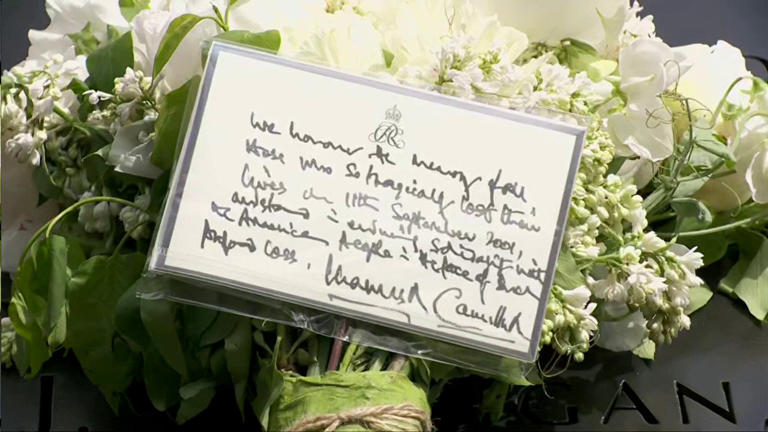 We honour the memory of all
those who so tragically lost their
lives on 11th September 2001,
and stand in enduring solidarity with
the American People in the face of their
profound loss.
Charles R Camilla R
J.
GAN